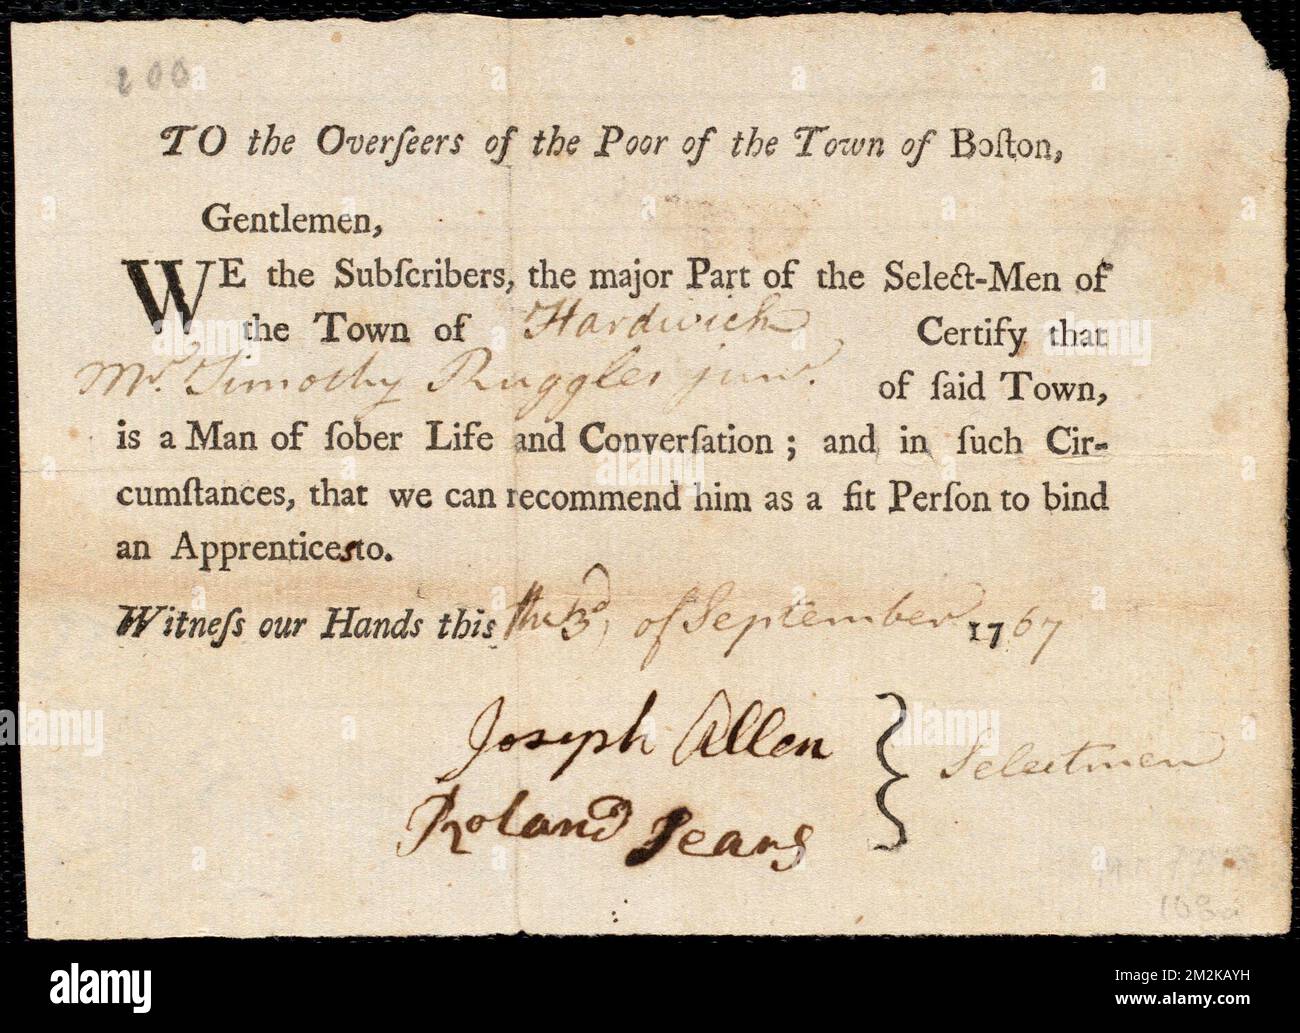 200
TO the Overſeers of the Poor of the Town of Boſton,
Gentlemen,
WE the Subſcribers, the major Part of the Select-Men of
the Town of Hardwich Certify that
Mr. Timothy Ruggles junr. of ſaid Town,
is a Man of ſober Life and Converſation; and in ſuch Cir-
cumſtances, that we can recommend him as a fit Perſon to bind
an Apprentices to.
Witneſs our Hands this the 3d, of September 1767
Joseph Allen
Selectmen
Roland Sears
alamy
Image ID: 2M2KAYH
www.alamy.com